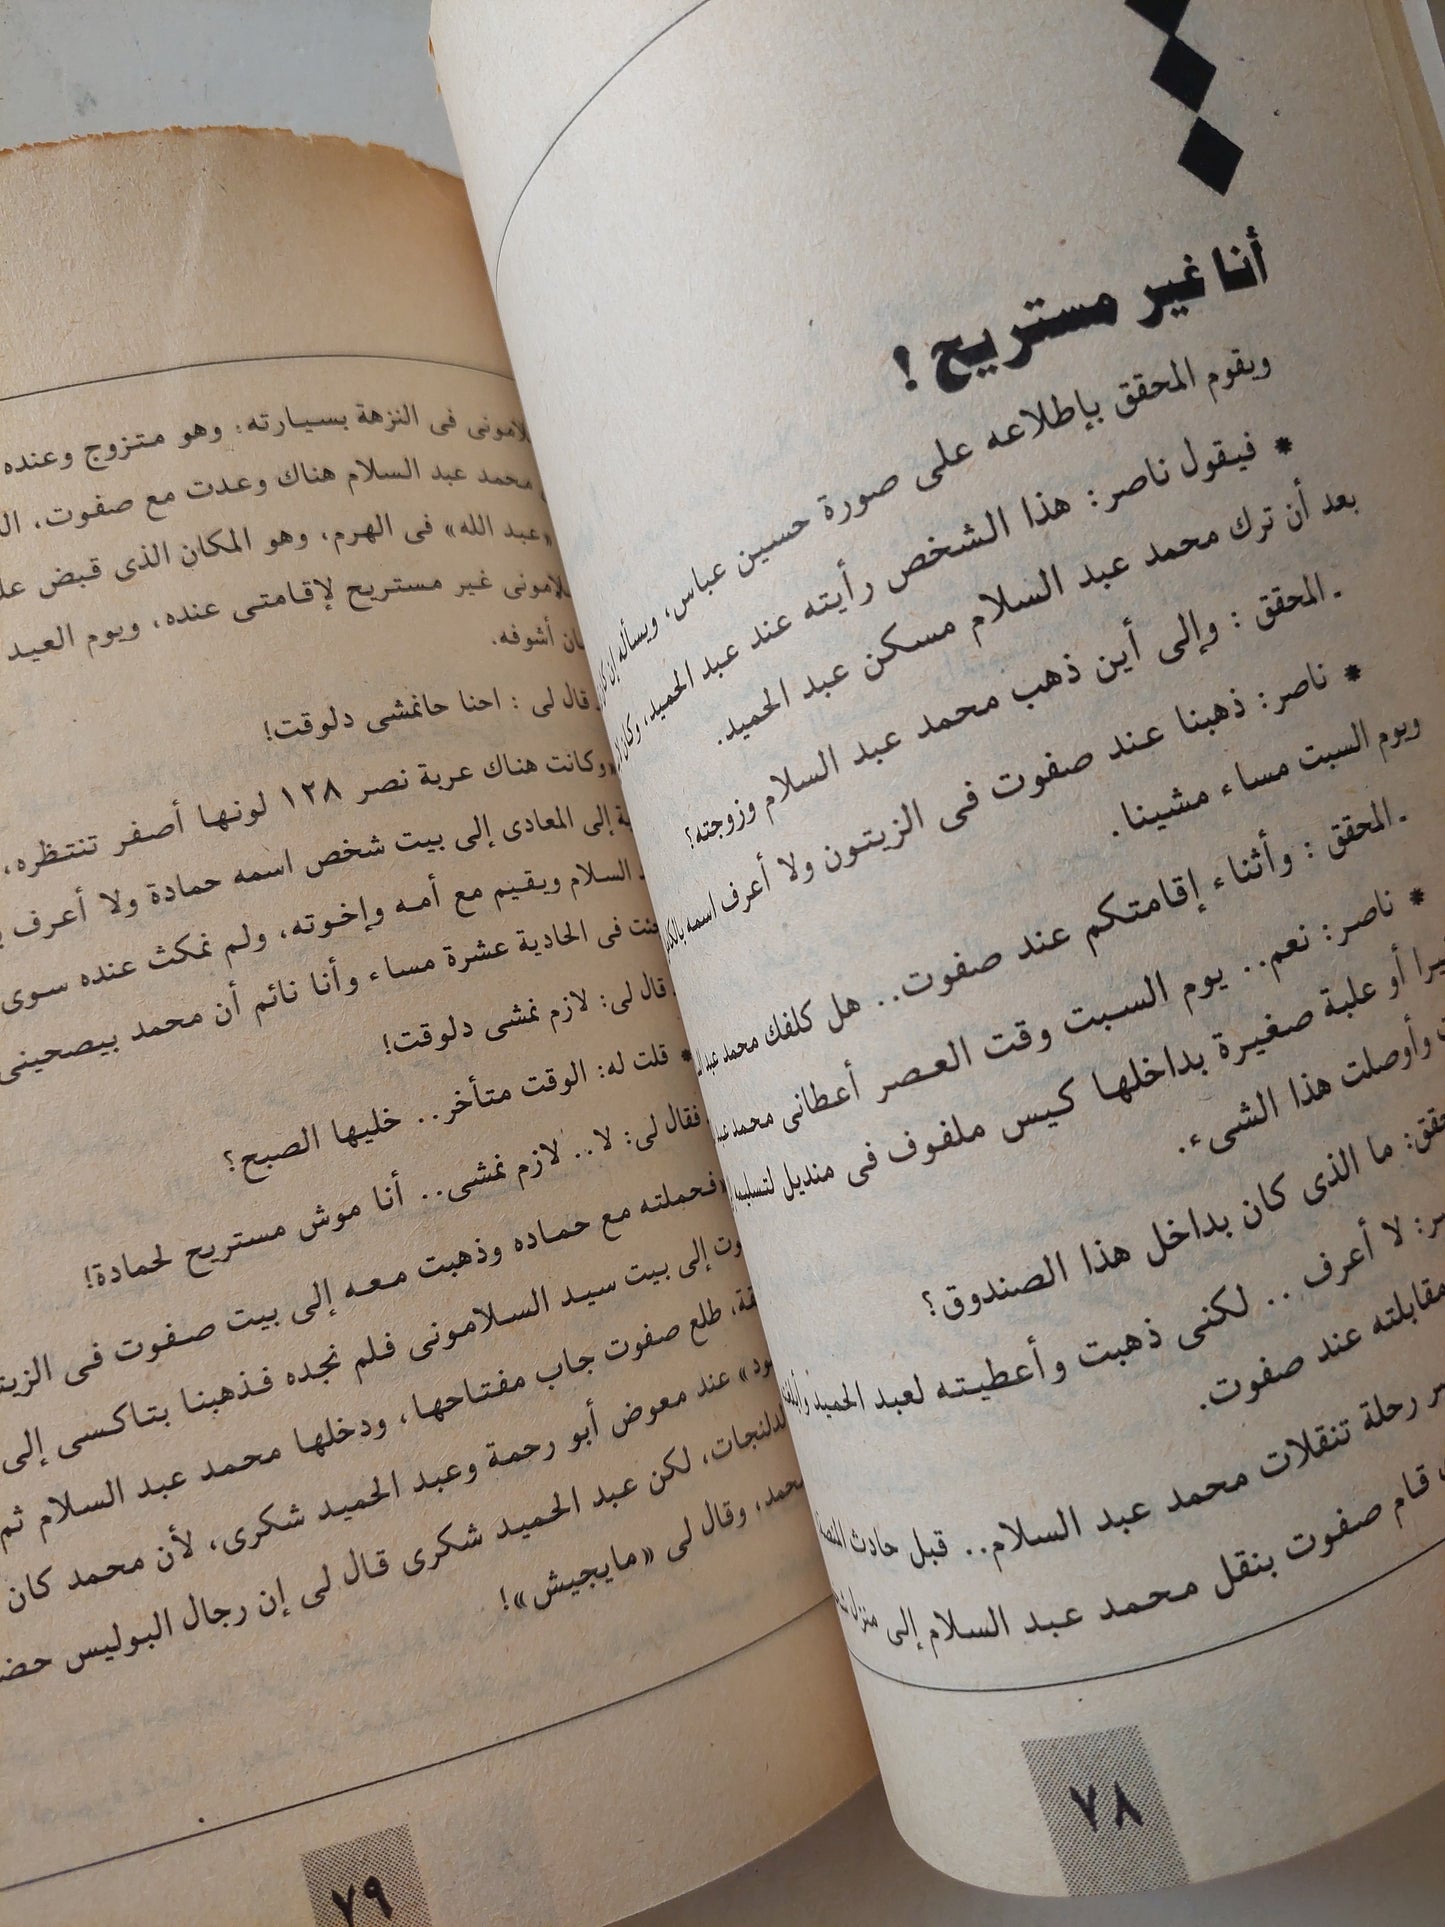 أنا غير مستريح !
ويقوم المحقق بإطلاعه على صورة حسين عباس، ويسأله إن
* فيقول ناصر: هذا الشخص رأيته عند عبد الحميد، وكان
بعد أن ترك محمد عبد السلام مسكن عبد الحميد.
ـ المحقق : وإلى أين ذهب محمد عبد السلام وزوجته؟
* ناصر: ذهبنا عند صفوت فى الزيتون ولا أعرف اسمه
ويوم السبت مساء مشينا.
ـ المحقق : وأثناء إقامتكم عند صفوت.. هل كلفك محمد عبد
* ناصر: نعم.. يوم السبت وقت العصر أعطانى محمد عبد
أو علبة صغيرة بداخلها كيس ملفوف فى منديل لتسليمه
وأوصلت هذا الشىء.
ما الذى كان بداخل هذا الصندوق؟
لا أعرف... لكنى ذهبت وأعطيته لعبد الحميد
مقابلته عند صفوت.
رحلة تنقلات محمد عبد السلام.. قبل حادث
قام صفوت بنقل محمد عبد السلام إلى منزل
٧٨
فى النزهة بسيارته، وهو متزوج وعنده
محمد عبد السلام هناك وعدت مع صفوت،
«عبد الله» فى الهرم، وهو المكان الذى قبض
غير مستريح لإقامتى عنده، ويوم العيد
أشوفه.
قال لى : احنا حانمشى دلوقت!
«وكانت هناك عربة نصر ١٢٨ لونها أصفر تنتظره،
إلى المعادى إلى بيت شخص اسمه حمادة ولا أعرف
السلام ويقيم مع أمه وإخوته، ولم نمكث عنده سوى
فى الحادية عشرة مساء وأنا نائم أن محمد بيصحينى
قال لى: لازم نمشى دلوقت!
* قلت له: الوقت متأخر.. خليها الصبح؟
فقال لى: لا.. لازم نمشى.. أنا موش مستريح لحمادة!
«فحملته مع حماده وذهبت معه إلى بيت صفوت فى
إلى بيت سيد السلامونى فلم نجده فذهبنا بتاكسى إلى
طلع صفوت جاب مفتاحها، ودخلها محمد عبد السلام ثم
عند معوض أبو رحمة وعبد الحميد شكرى، لأن محمد كان
الدلنجات، لكن عبد الحميد شكرى قال لى إن رجال البوليس
محمد، وقال لى «مايجيش»!
٧٩